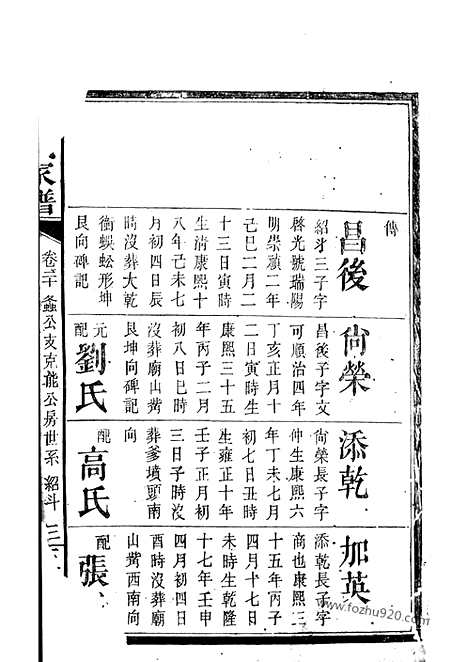 傳
昌後
紹斗三子字
啓光號瑞陽
明崇禎二年
己巳二月二
十三日寅時
生清康熙十
八年己未七
月初四日辰
時沒葬大乾
衝蜈蚣形坤
艮向碑記
尙榮
昌後子字文
可順治四年
丁亥正月十
二日寅時生
康熙三十五
年丙子二月
初八日巳時
沒葬廟山嵅
艮坤向碑記
元配劉氏
添乾
尙榮長子字
仲生康熙六
年丁未七月
初七日丑時
生雍正十年
壬子正月初
三日子時沒
葬爹墳頭南
向
配高氏
加英
添乾長子字
商也康熙三
十五年丙子
四月十七日
未時生乾隆
十七年壬申
四月初四日
酉時沒葬廟
山嵅西南向
配張
家譜
卷三十 螽公支克能公房世系 紹斗
www.fozhu920.com